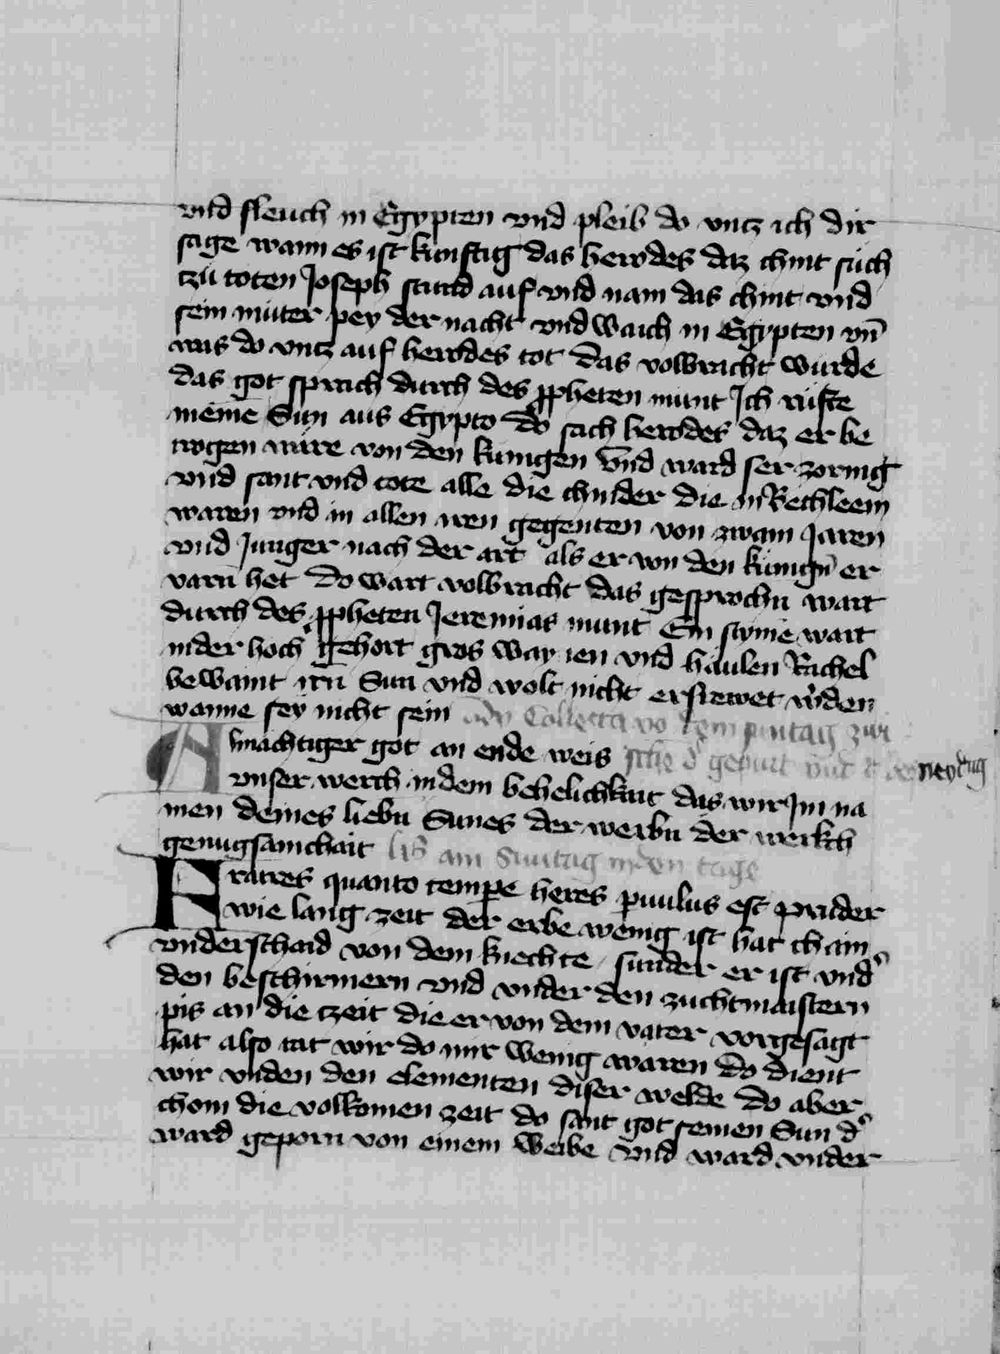 vnd fleuch in Egypten vnd pleib do vntz ich dir
sage wann es ist kunftig das herodes daz chint such
tzu toten Joseph stund auf vnd nam das chint vnd
sein muter pey der nacht vnd waich in Egypten vn̄
was do vntz auf herodes tot das volbracht wurde
das got sprach durch des ꝓpheten munt Ich rufte
meine Sun aus Egypto do sach herodes daz er be
trogen wure von den kunigen vnd ward ser zornig
vnd sant vnd tote alle die chinder die in Bethleem
waren vnd in allen iren gegenten von zwain Jaren
vnd Junger nach der art als er von den kunign̄ er
varn het do wart volbracht das gesprochn wart
durch des ꝓpheten Jeremias munt Ein styme wart
in der hoch gehort gros way ien vnd haulen Rachel
bewaint irn Sun vnd wolt nicht erfrewet wͦden
wanne sey nicht sein Collecta suntag
Almachtiger got an ende weis geburt vnd
vnser werch in dem behelichkait das wir Im na
men deines liebn Sunes der werbn der werkch
genugsamchait lis am Suntag in den tage
Fratres quanto tempe heres pͣuulus est pruder
wie lang zeit der erbe wenig ist hat chain
vnderschaid von dem knechte / sunder er ist vndͦ
den beschirmern vnd vnder den zuchtmaistern
pis an die tzeit die er von dem vater vorgesagt
hat also tat wir do mir wenig waren do dient
wir vnden den elementen diser welde do aber
chom die volkomen zeit do sant got seinen Sun dͦ
ward geporn von einem weibe vnd ward vnder